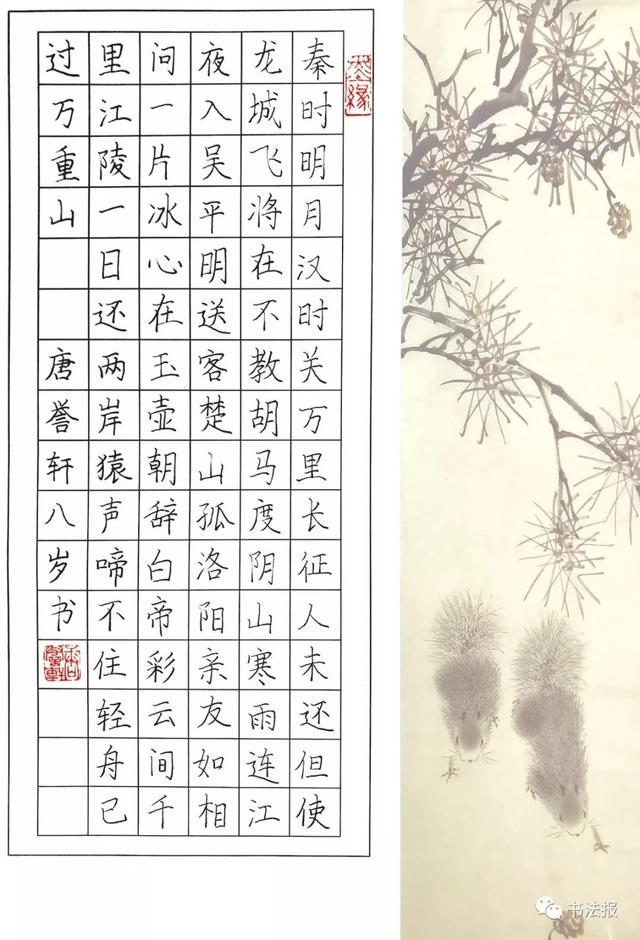 墨緣
秦时明月汉时关万里长征人未还但使
龙城飞将在不教胡马度阴山寒雨连江
夜入吴平明送客楚山孤洛阳亲友如相
问一片冰心在玉壶朝辞白帝彩云间千
里江陵一日还两岸猿声啼不住轻舟已
过万重山 唐誉轩八岁书
书法报